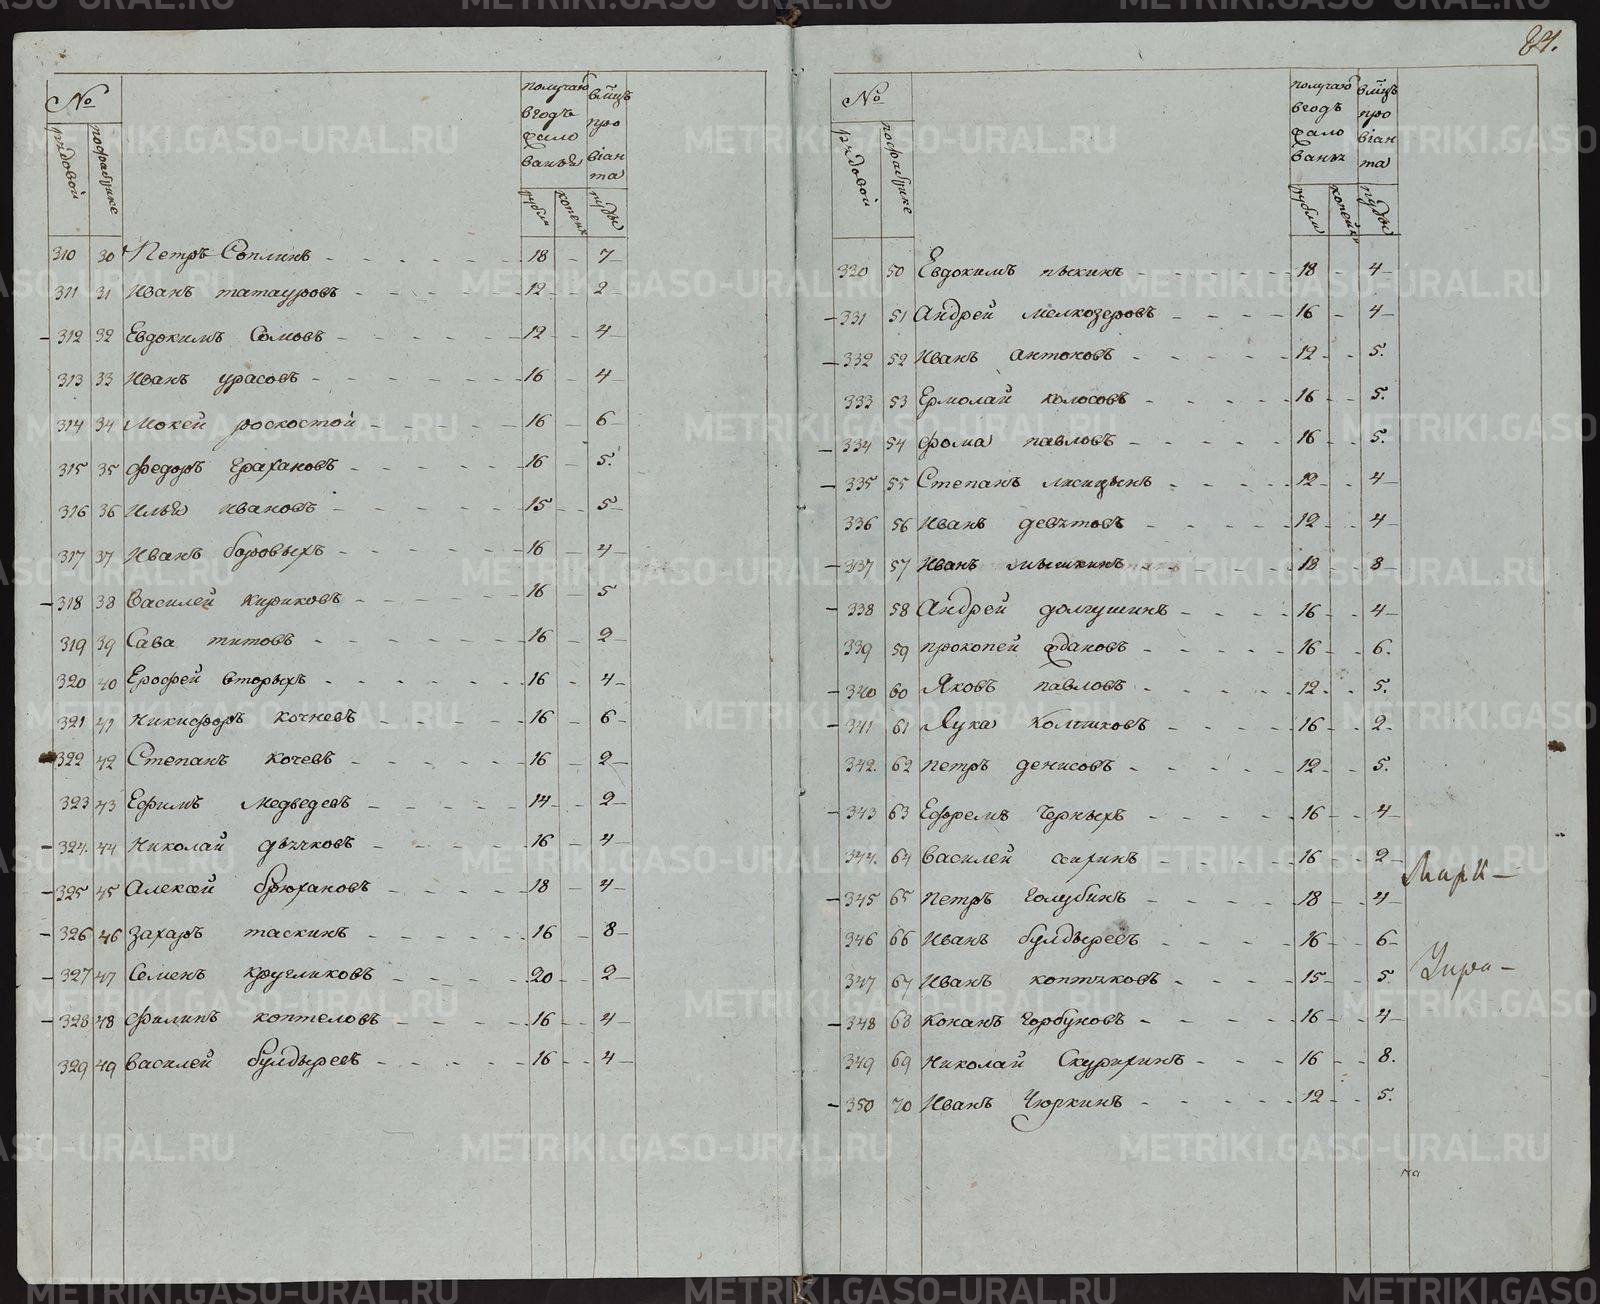 84.
№
рядовой
пофабрике
получаю
вгодъ
жало
ванья
рубли
копеик
вмцъ
про
віан
та
пуды
310 30 Петръ Соплинъ 18 - 7
311 31 Иванъ татауровъ 12 - 2
312 32 Евдокимъ Сомовъ 12 - 4
313 33 Иванъ урасовъ 16 - 4
314 34 Мокей роскостой 16 - 6
315 35 Федоръ Грахановъ 16 - 5.
316 36 Илья ивановъ 15 - 5
317 37 Иванъ боровыхъ 16 - 4
318 38 Василей кириковъ 16 - 5
319 39 Сава титовъ 16 - 2
320 40 Ерофей вторыхъ 16 - 4
321 41 Никифоръ кочневъ 16 - 6
322 42 Степанъ кочевъ 16 - 2
323 43 Ефимъ Медведевъ 14 - 2
324. 44 Николай дьячковъ 16 - 4
325 45 Алексей брюхановъ 18 - 4
326 46 Захаръ таскинъ 16 - 8
327 47 Семенъ кругликовъ 20 - 2
328 48 Филипъ коптеловъ 16 - 4
329 49 Василей булдыревъ 16 - 4
№
рядовой
пофабрике
получаю
вгодъ
жало
ванья
рубли
копейки
вмцъ
про
віан
та
пуды
330 50 Евдокимъ пыкинъ 18 - 4
331 51 Андрей мелкозеровъ 16 - 4
332 52 Иванъ антоновъ 12 - 5.
333 53 Ермолай колосовъ 16 - 5.
334 54 Фома павловъ 16 - 5.
335 55 Степанъ лисицынъ 12 - 4
336 56 Иванъ девятовъ 12 - 4
337 57 Иванъ мышкинъ 18 - 8
338 58 Андрей долгушинъ 16 - 4
339 59 Прокопей ждановъ 16 - 6.
340 60 Яковъ павловъ 12 - 5.
341 61 Лука Колпиковъ 16 - 2.
342. 62 Петръ денисовъ 12 - 5.
343 63 Ефремъ Черныхъ 16 - 4
344. 64 Василей 16 - 2
Марк-
345 65 Петръ Голубинъ 18 - 4
346 66 Иванъ булдыревъ 16 - 6
347 67 Иванъ коптяковъ 15 - 5
348 68 Конанъ Горбуновъ 16 - 4
349 69 Николай Скурихинъ 16 - 8.
350 70 Иванъ Чюркинъ 12 - 5.
METRIKI.GASO-URAL.RU